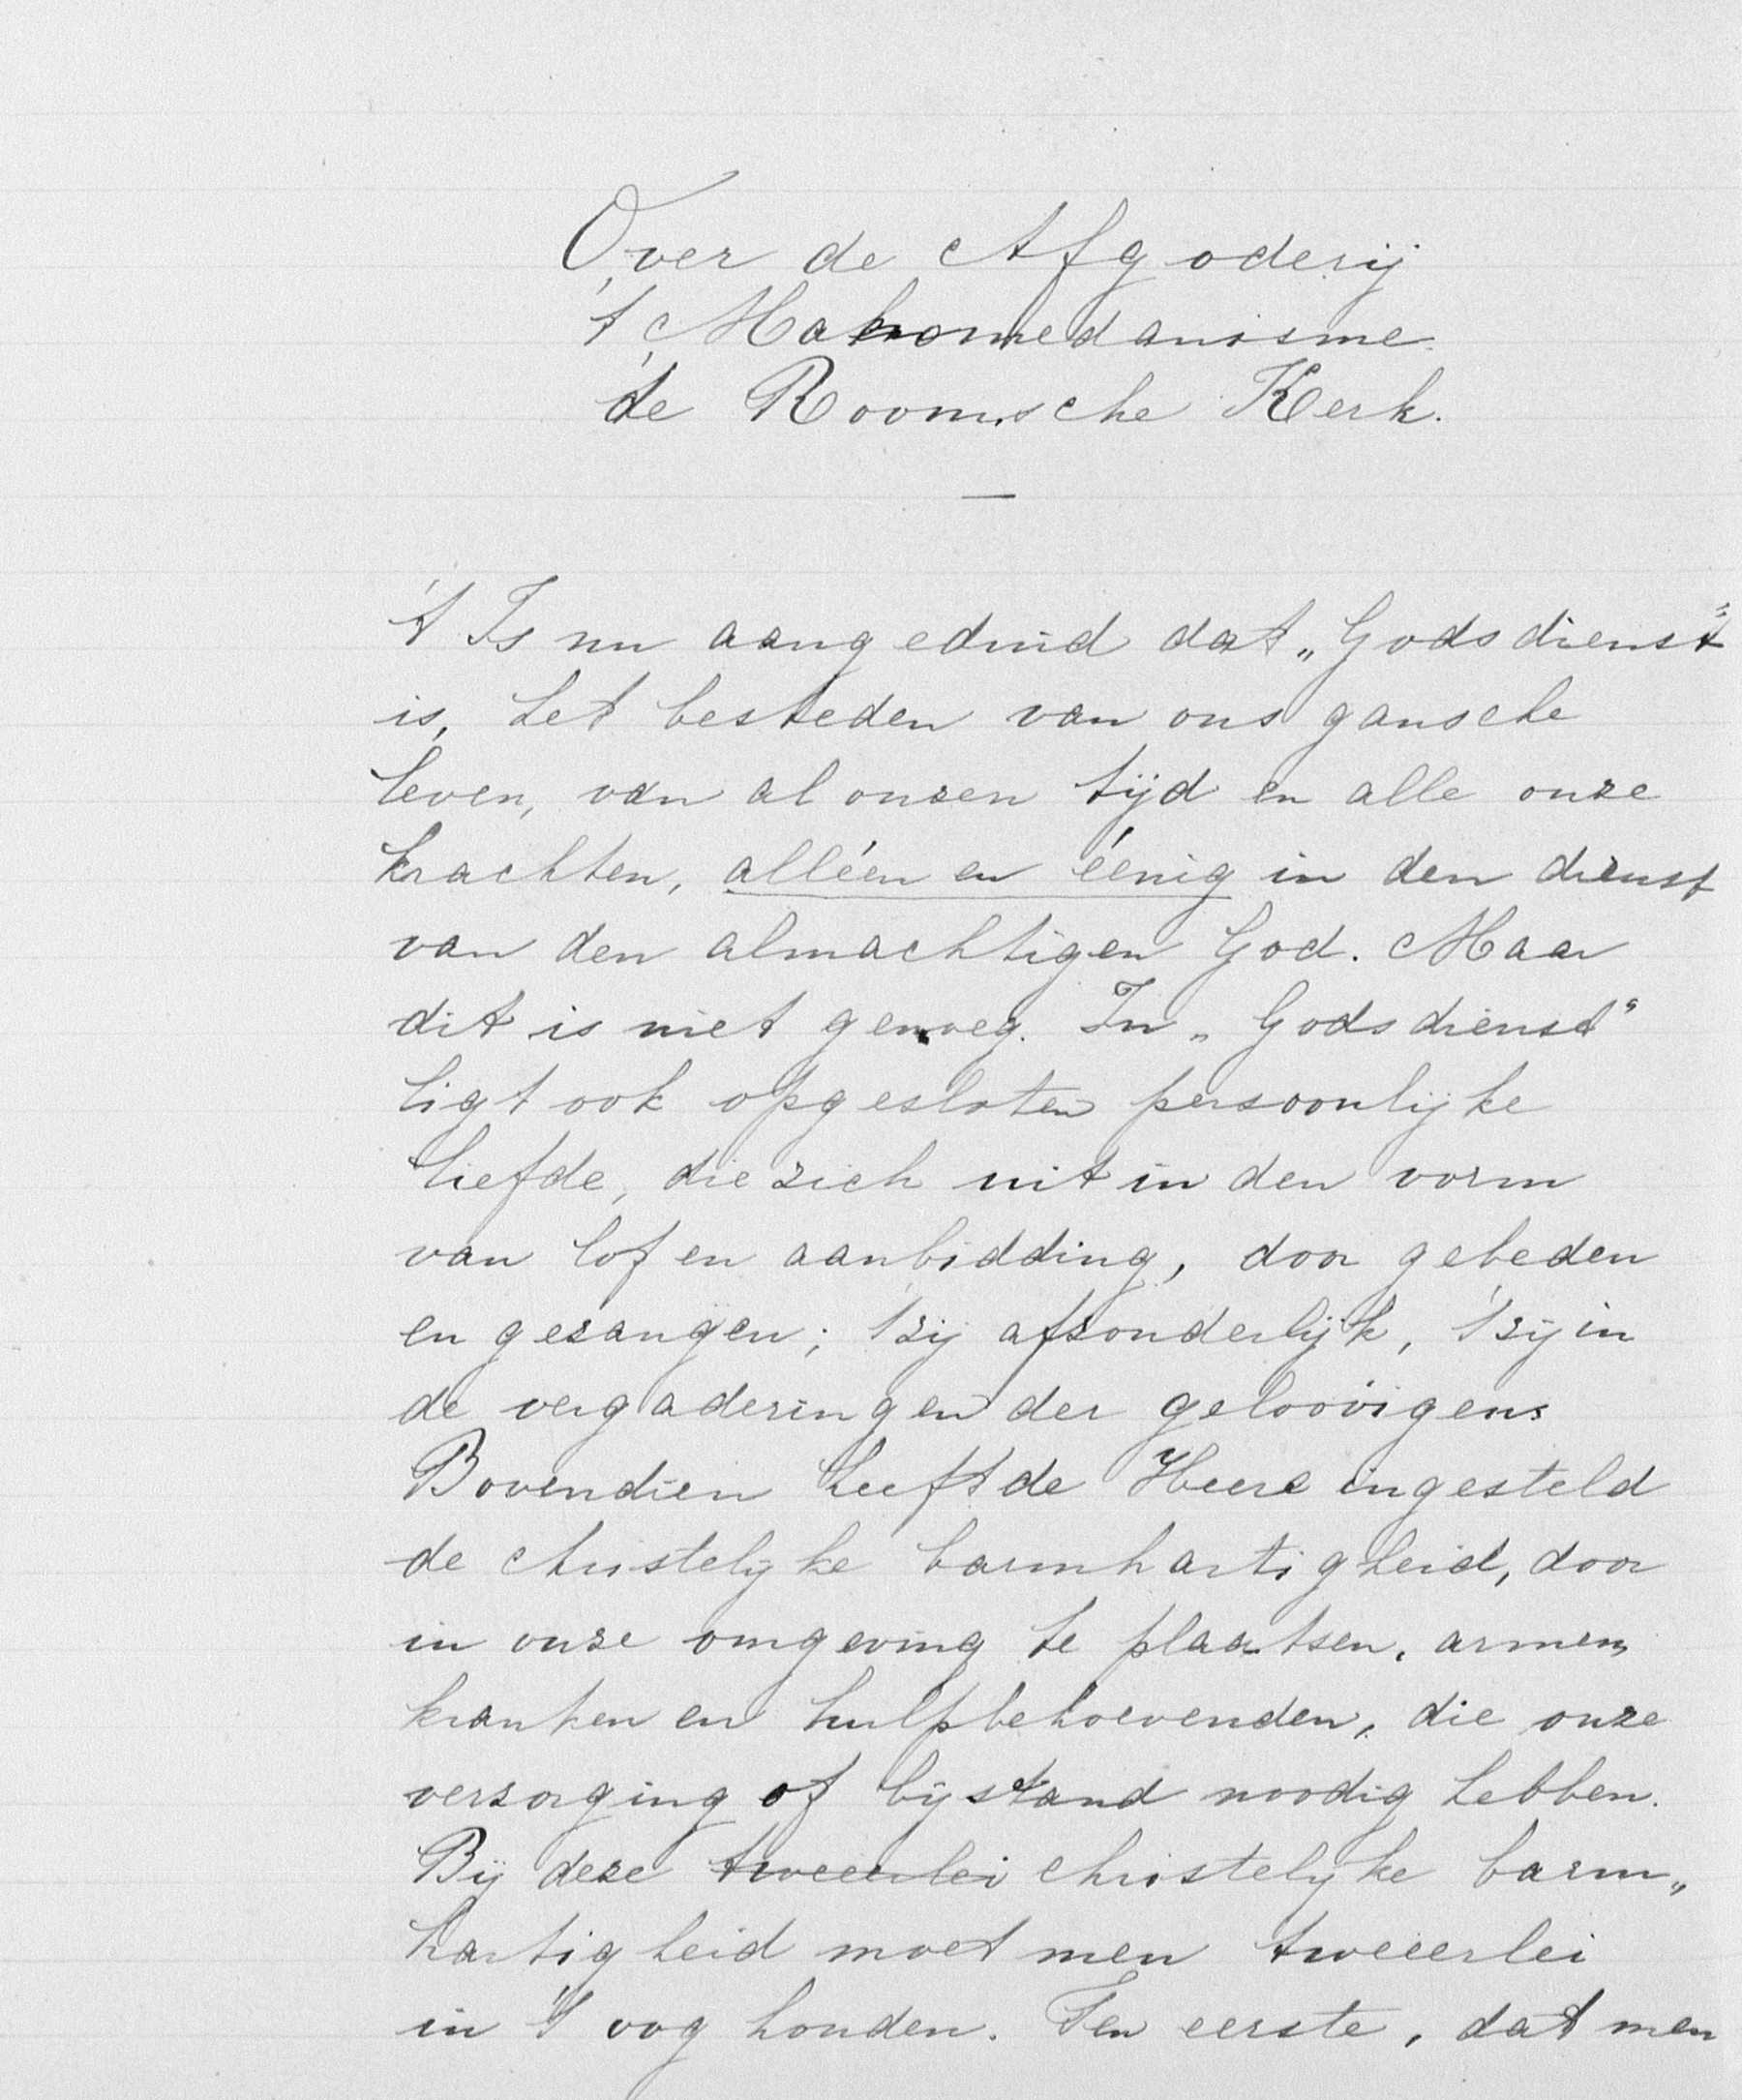 Over de Afgoderij
't Mahomedanisme.
de Roomsche Kerk.
—
't Is nu aangeduid dat „Godsdienst"
is, het besteden van ons gansche
leven, van al onzen tijd en alle onze
krachten, alléen en éenig in den dienst
van den almachtigen God. Maar
dit is niet genoeg. In „Godsdienst"
ligt ook opgesloten persoonlijke
liefde, die zich uit in den vorm
van lof en aanbidding, door gebeden
en gezangen; 'tzij afzonderlijk, 'tzij in
de vergaderingen der geloovigens
Bovendien heeft de Heere ingesteld
de christelijke barmhartigheid, door
in onze omgeving te plaatsen, armen,
kranken en hulpbehoevenden, die onze
verzorging of bijstand noodig hebben.
Bij deze tweeerlei christelijke barm„
hartigheid moet men tweeerlei
in 't oog houden. Ten eerste, dat men